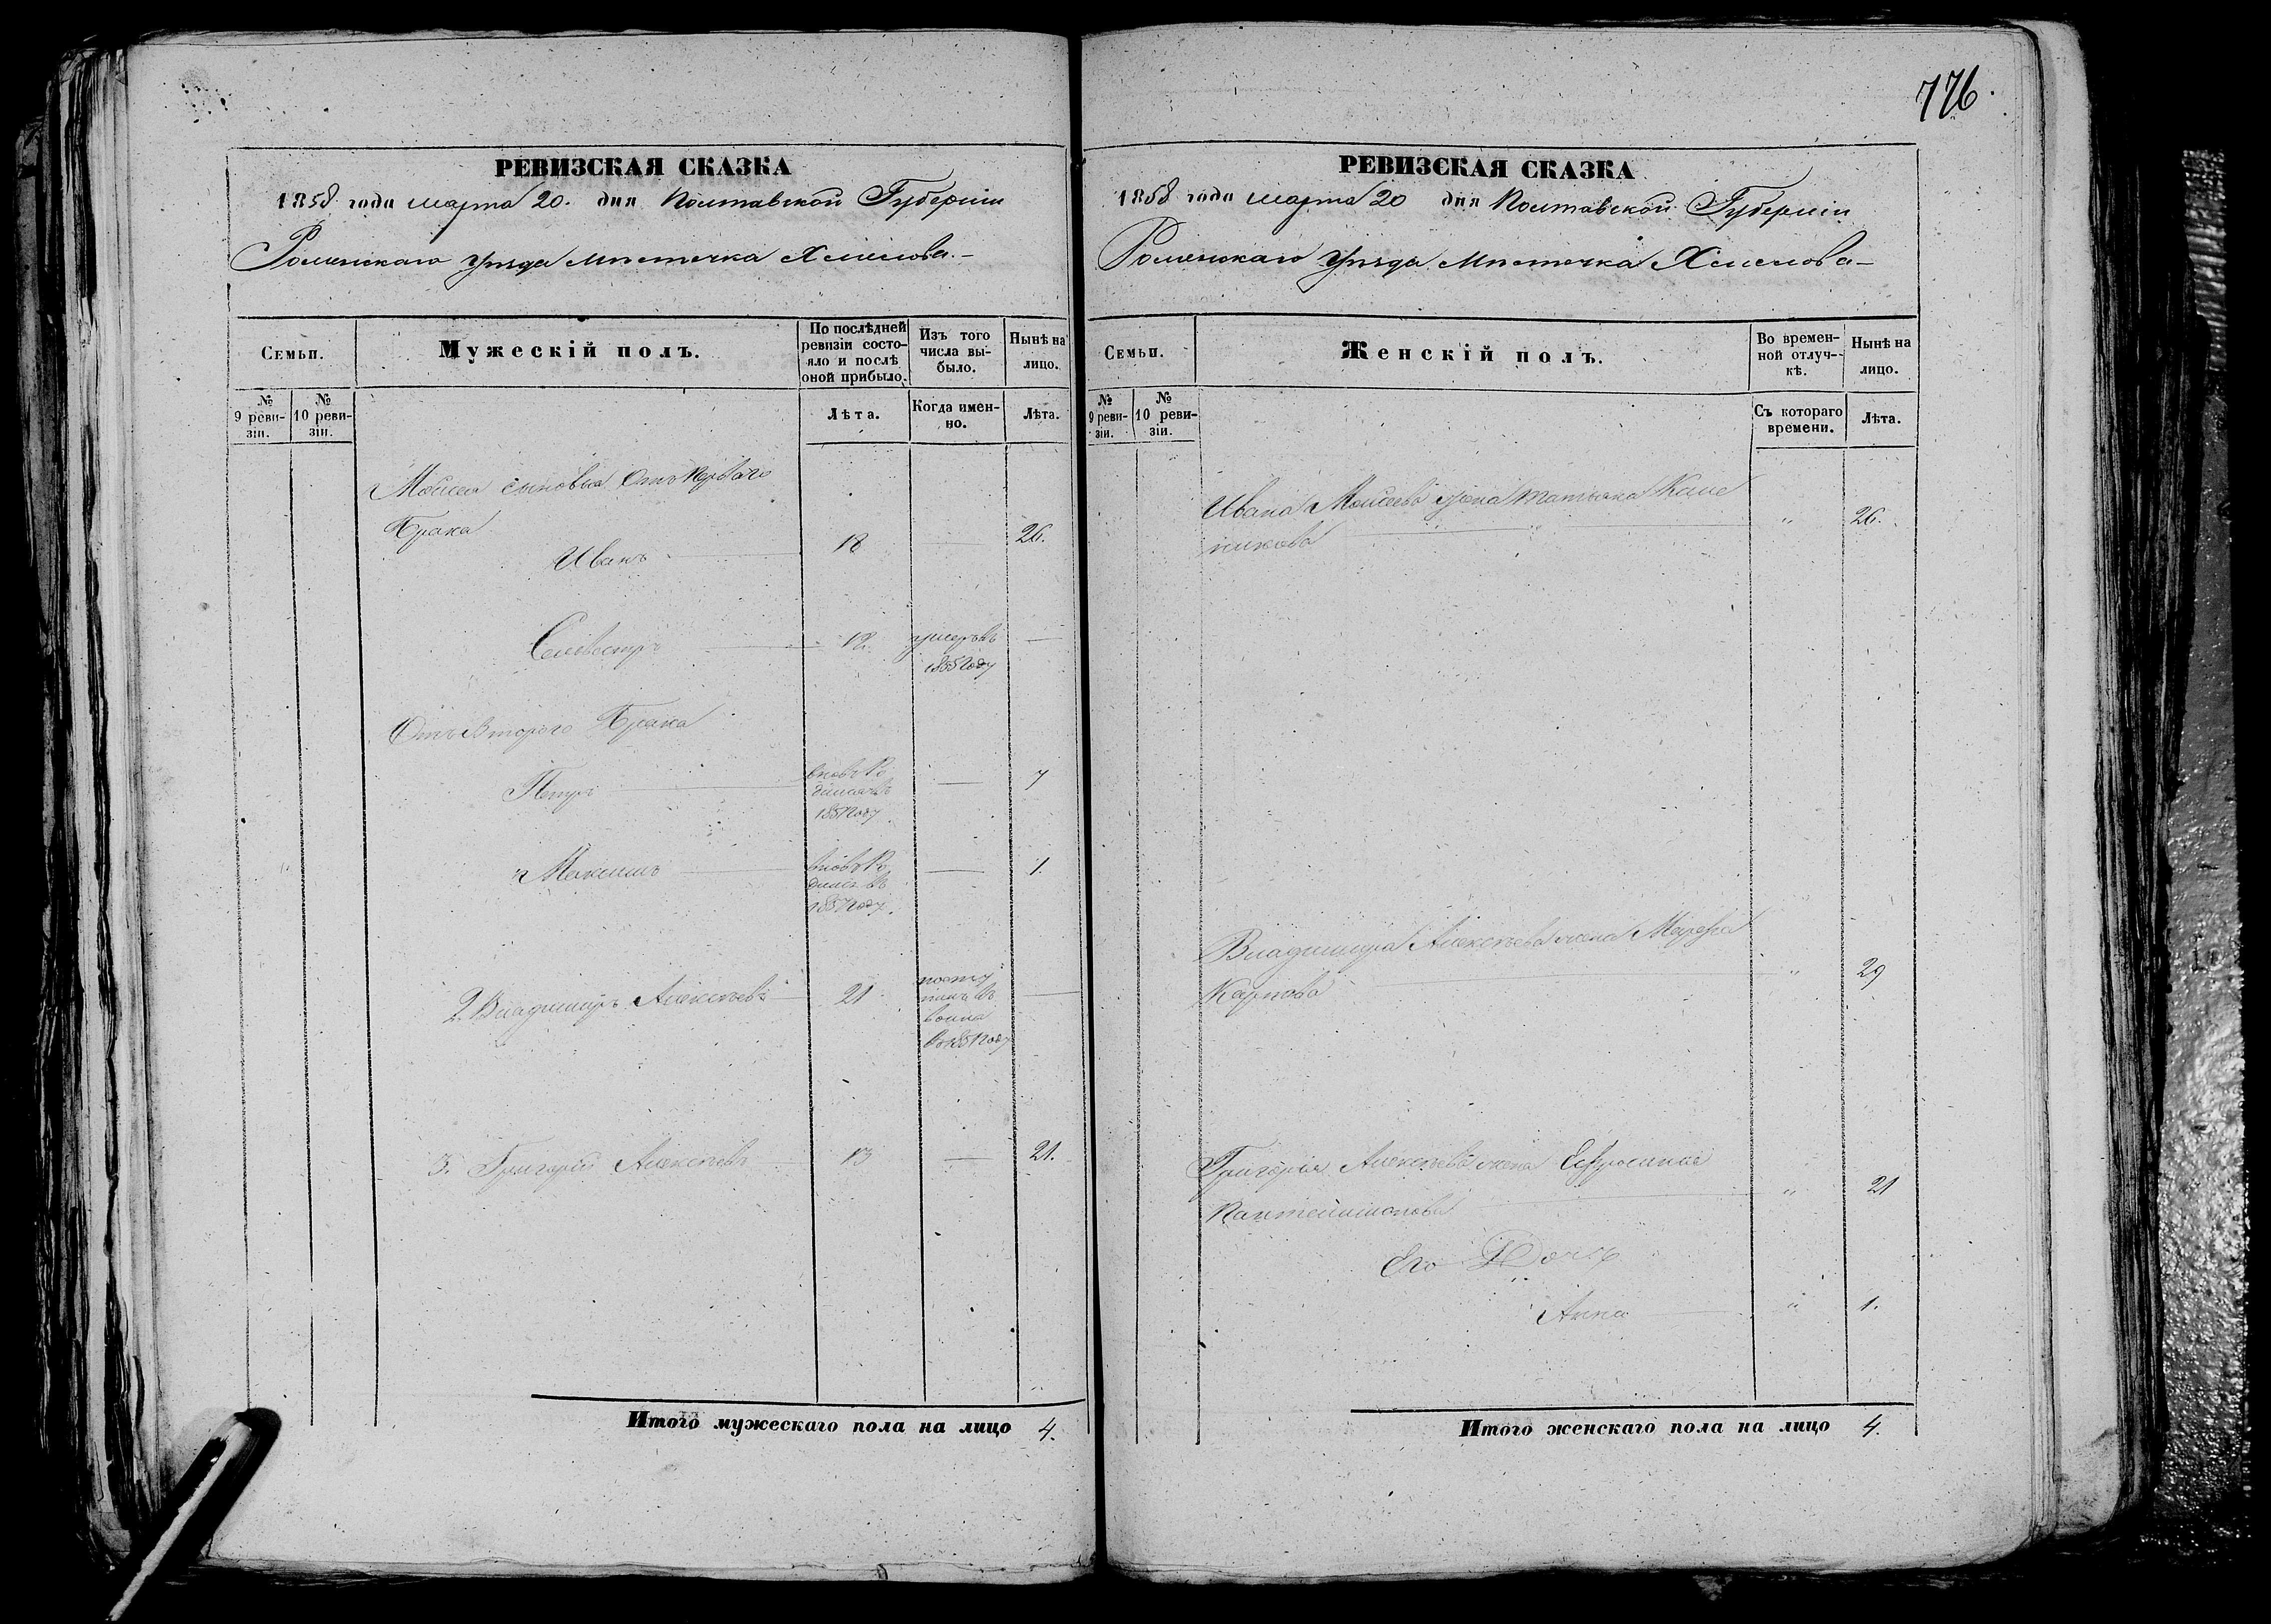 776.
РЕВИЗСКАЯ СКАЗКА
1858 года марта 20. дня Полтавской Губерніи
Роменскаго уѣзда мѣстечка Хмелова.
Семьи.
Мужескій полъ.
По послѣдней ревизіи состояло и послѣ оной прибыло.
Изъ того числа выбыло.
Нынѣ на лицо.
№ 9 ревизіи.
№ 10 ревизіи.
Лѣта.
Когда именно.
Лѣта.
Моисея сыновья отъ перваго
брака
Иванъ 18 — 26.
Селивестръ 12. умеръ въ —
1855 году
Отъ втораго брака
Петръ — 7
вновь ро
1851 году
Максимъ — 1.
вновь ро
дился въ
1857 году.
2. Владимиръ Алексѣевъ 21 —
посту
пилъ въ
въ 1851 году
3. Григорій Алексѣевъ 13 — 21.
Итого мужескаго пола на лицо 4.
РЕВИЗСКАЯ СКАЗКА
1858 года марта 20 дня Полтавской Губерніи
Роменскаго уѣзда мѣстечка Хмелова
Семьи.
Женскій полъ.
Во временной отлучкѣ.
Нынѣ на лицо.
№ 9 ревизіи.
№ 10 ревизіи.
Съ котораго времени.
Лѣта.
Ивана Моисеева жена Татьяна
„ 26.
Владимира Алексѣева жена Марфа
Карпова „ 29
Григорія Алексѣева жена Ефросинія
Пантелимонова „ 21
Его Дочь
Анна „ 1.
Итого женскаго пола на лицо 4.